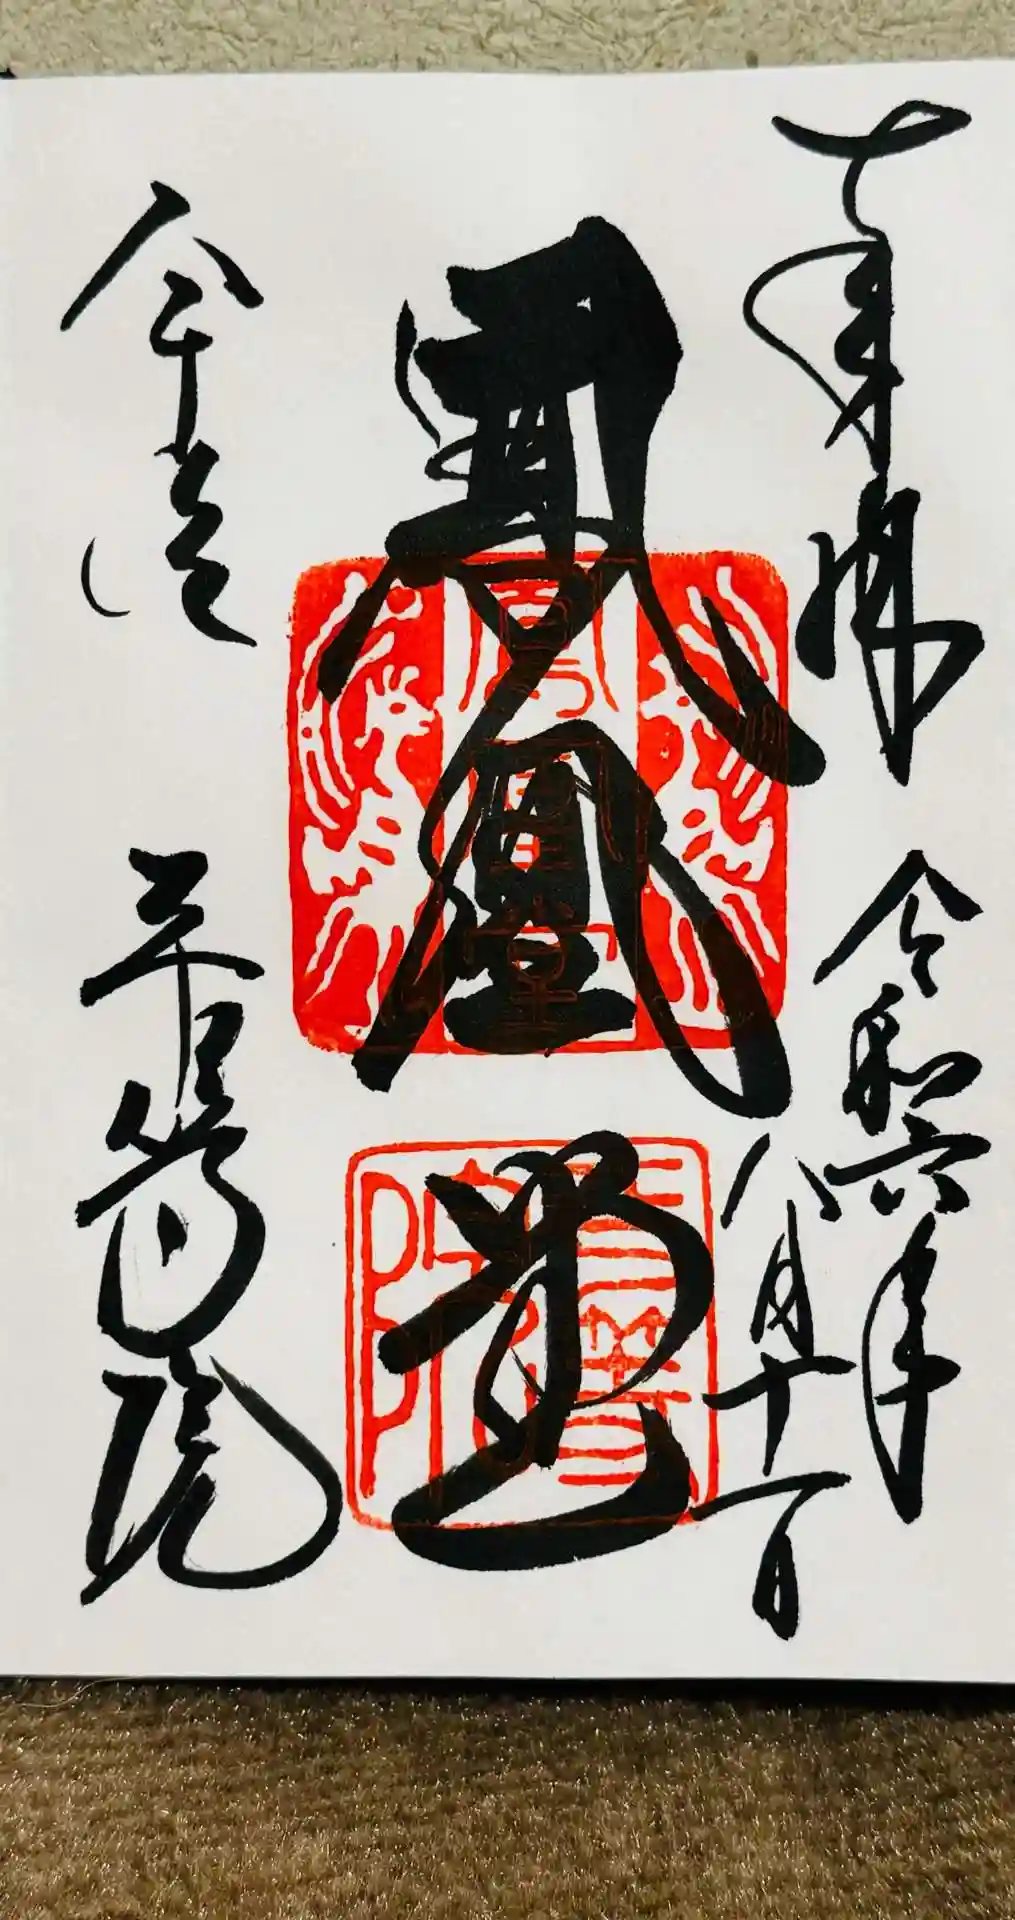 奉拝
令和六年
八月十一日
鳳凰堂
平等院